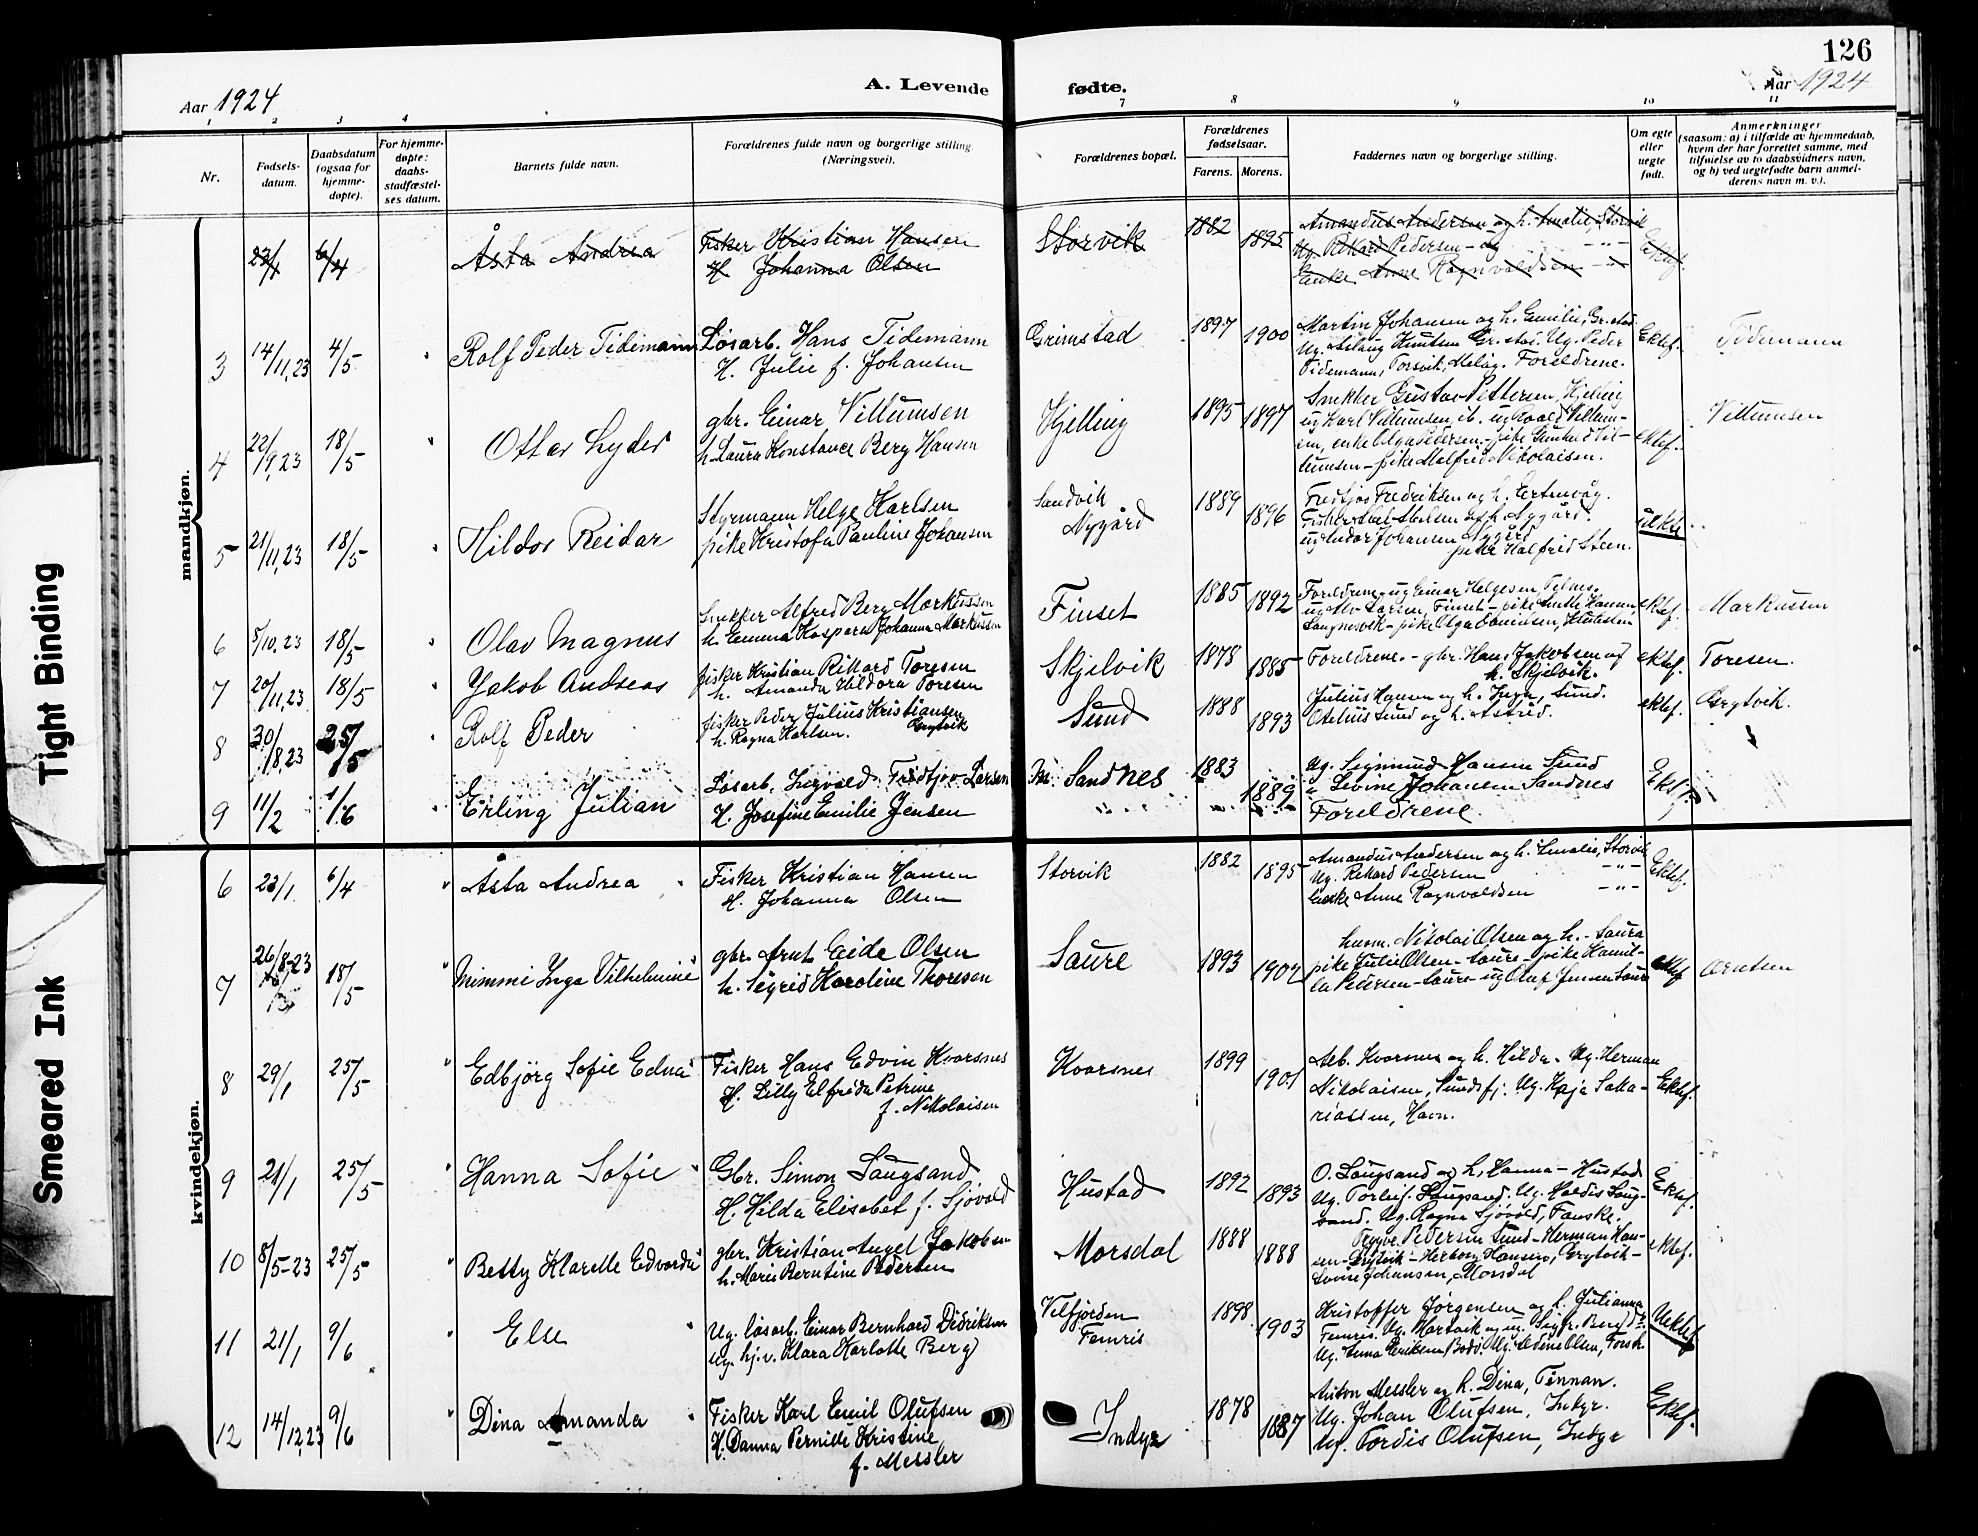 126
Aar 1924
A. Levende
fødte.
Aar 1924
1 2 3 4 7 8 9 10 11
Nr.
Fødsels-
datum.
Daabsdatum
(ogsaa for
hjemme-
døpte).
For hjemme-
døpte:
daabs-
stadfæstel-
ses datum.
Barnets fulde navn.
Forældrenes fulde navn og borgerlige stilling.
(Næringsvei).
Forældrenes bopæl.
Forældrenes
fødselsaar.
Farens. Morens.
Faddernes navn og borgerlige stilling.
Om egte
eller
uegte
født.
Anmerkninger
(saasom: a) i tilfælde av hjemmedaab,
hvem der har forrettet samme, med
tilføielse av to daabsvidners navn,
og b) ved uegtefødte barn anmel-
derens navn m. v.).
mandkjøn.
23/1 6/4 Åsta Andrea
Fisker Kristian Hansen
H Johanna Olsen
Storvik 1882 1895
Amandus Andersen og h. Amalie, Storvik
Ug. Rikard Pedersen - og
Enke Anne Ragnvaldsen - " -
Ektef.
3 14/11,23 4/5 " Rolf Peder Tidemann
Løsarb. Hans Tidemann
H. Julie f. Johansen
Grimstad 1897 1900
Martin Johansen og h. Emilie, Gr.stad
Ug. Aslaug Knutsen Gr.stad. Ug. Peder
Tidemann, Torsvik, Meløy. Foreldrene.
Ektef. Tidemann
4 22/9,23 18/5 " Ottar Lyder
gbr. Einar Villumsen
h. Laura Konstance Berg Hansen
Kjelling 1895 1897
Snekker Gustav Pettersen, Kjelling
ug Karl Villumsen, ib. ug Roald Villum-
sen, enke Olga Pedersen - pike Gunhild Vil-
lumsen - pike Malfrid Nikolaisen.
ektef. Villumsen
5 21/11,23 18/5 " Hildor Reidar
Styrmann Helge Karlsen
pike Kristofa Pauline Johansen
Sandvik
Nygård
1889 1896
Fredtjof Fredriksen og h. Eertenvåg.
ug Indar Johansen Nygård
pike Halfrid Steen.
uekte
6 5/10,23 18/5 " Olav Magnus
Snekker Alfred Berg Markussen
h. Emma Kaspara Johanna Markussen
Finset 1885 1892
Foreldrene - ug Einar Helgesen, Telnes,
ektef. Markussen
7 20/11,23 18/5 " Jakob Andreas
fisker Kristian Rikard Toresen
h. Amanda Hildora Toresen
Skjelvik 1878 1885
Foreldrene. - gbr. Hans Jakobsen og
h. Skjelvik.
ektef. Toresen.
8 30/8,23 25/5 " Rolf Peder
fisker Peder Julius Kristiansen
h. Ragna Karlsen. Grytvik
Sund 1888 1893
Julius Hansen og h. Inga, Sund.
Otelius Sund og h. Astrid.
ektef. Grytvik.
9 11/2 1/6 " Erling Julian
Løsarb. Ingvald Fredtjov Larsen
H. Josefine Emilie Jensen
Sandnes 1883 1889
Ug. Sigmund Hansen Sund
" Levine Johansen Sandnes
Foreldrene.
Ektf.
kvindekjøn.
6 23/1 6/4 " Åsta Andrea "
Fisker Kristian Hansen
H. Johanna Olsen
Storvik 1882 1895
Amandus Andersen og h. Amalie, Storvik
Ug. Rikard Pedersen - " -
Enke Anne Ragnvaldsen - " -
Ektef.
7 26/8,23 18/5 " Mimmi Inga Vilhelmine
gbr. Arnt Eide Olsen
h. Sigrid Karoline Thoresen
Saure 1893 1902
husm. Nikolai Olsen og h. - Saura
pike Julie Olsen - Saure - pike Kamil-
la Petersen - Saure - ug Oluf Jensen Saure
ektef Arntsen
8 29/1 25/5 " Edbjörg Sofie Edna
Fisker Hans Edvin Kvarsnes
H. Lilly Elfrida Petrine
f. Nikolaisen
Kvarsnes 1899 1901
Alb. Kvarsnes og h. Hilda. Ug. Herman
Nikolaisen, Sundsfj. Ug. Kaja Saka-
riassen, Havn.
Ektef.
9 21/1 25/5 " Hanna Sofie "
Gbr. Simon Laugsand
H. Hilda Elisabet f. Sjövold
Hustad 1892 1893
O. Laugsand og h. Hanna - Hustad
Ug. Torleif Laugsand. Ug. Haldis Laug-
sand. Ug. Ragna Sjövold, Fauske.
Ektef.
10 8/5-23 25/5 " Betty Klarelle Edvarda
gbr. Kristian Angel Jakobsen
h. Marie Berntine Pedersen
Morsdal 1888 1888
Trygve Pedersen Sund - Herman Han-
sen - Grytvik - Herborg Hansen, Grytvik -
Lovine Johansen, Morsdal
ektef.
11 21/1 9/6 " Else "
Ug. løsarb. Einar Bernhard Didriksen
ug. hj.v. Klara Karlotte Berg)
Velfjorden
Femris
1898 1903
Kristoffer Jørgensen og h. Julianna
Femris. Ug. Martvik og ug. Sigfr. Berg
Ug. Anna Eriksen, Bodö. Ug. Aldine Olsen, Torsk.
Uektef
12 14/12,23 9/6 " Dina Amanda "
Fisker Karl Emil Olufsen
H. Danna Pernille Kristine
f. Messler
Indyr 1878 1887
Anton Messler og h. Dina, Tinnan.
Ug. Johan Olufsen, Indyr.
Ug. Tordis Olufsen, Indyr
Ektef.
Tight Binding
Smeared Ink